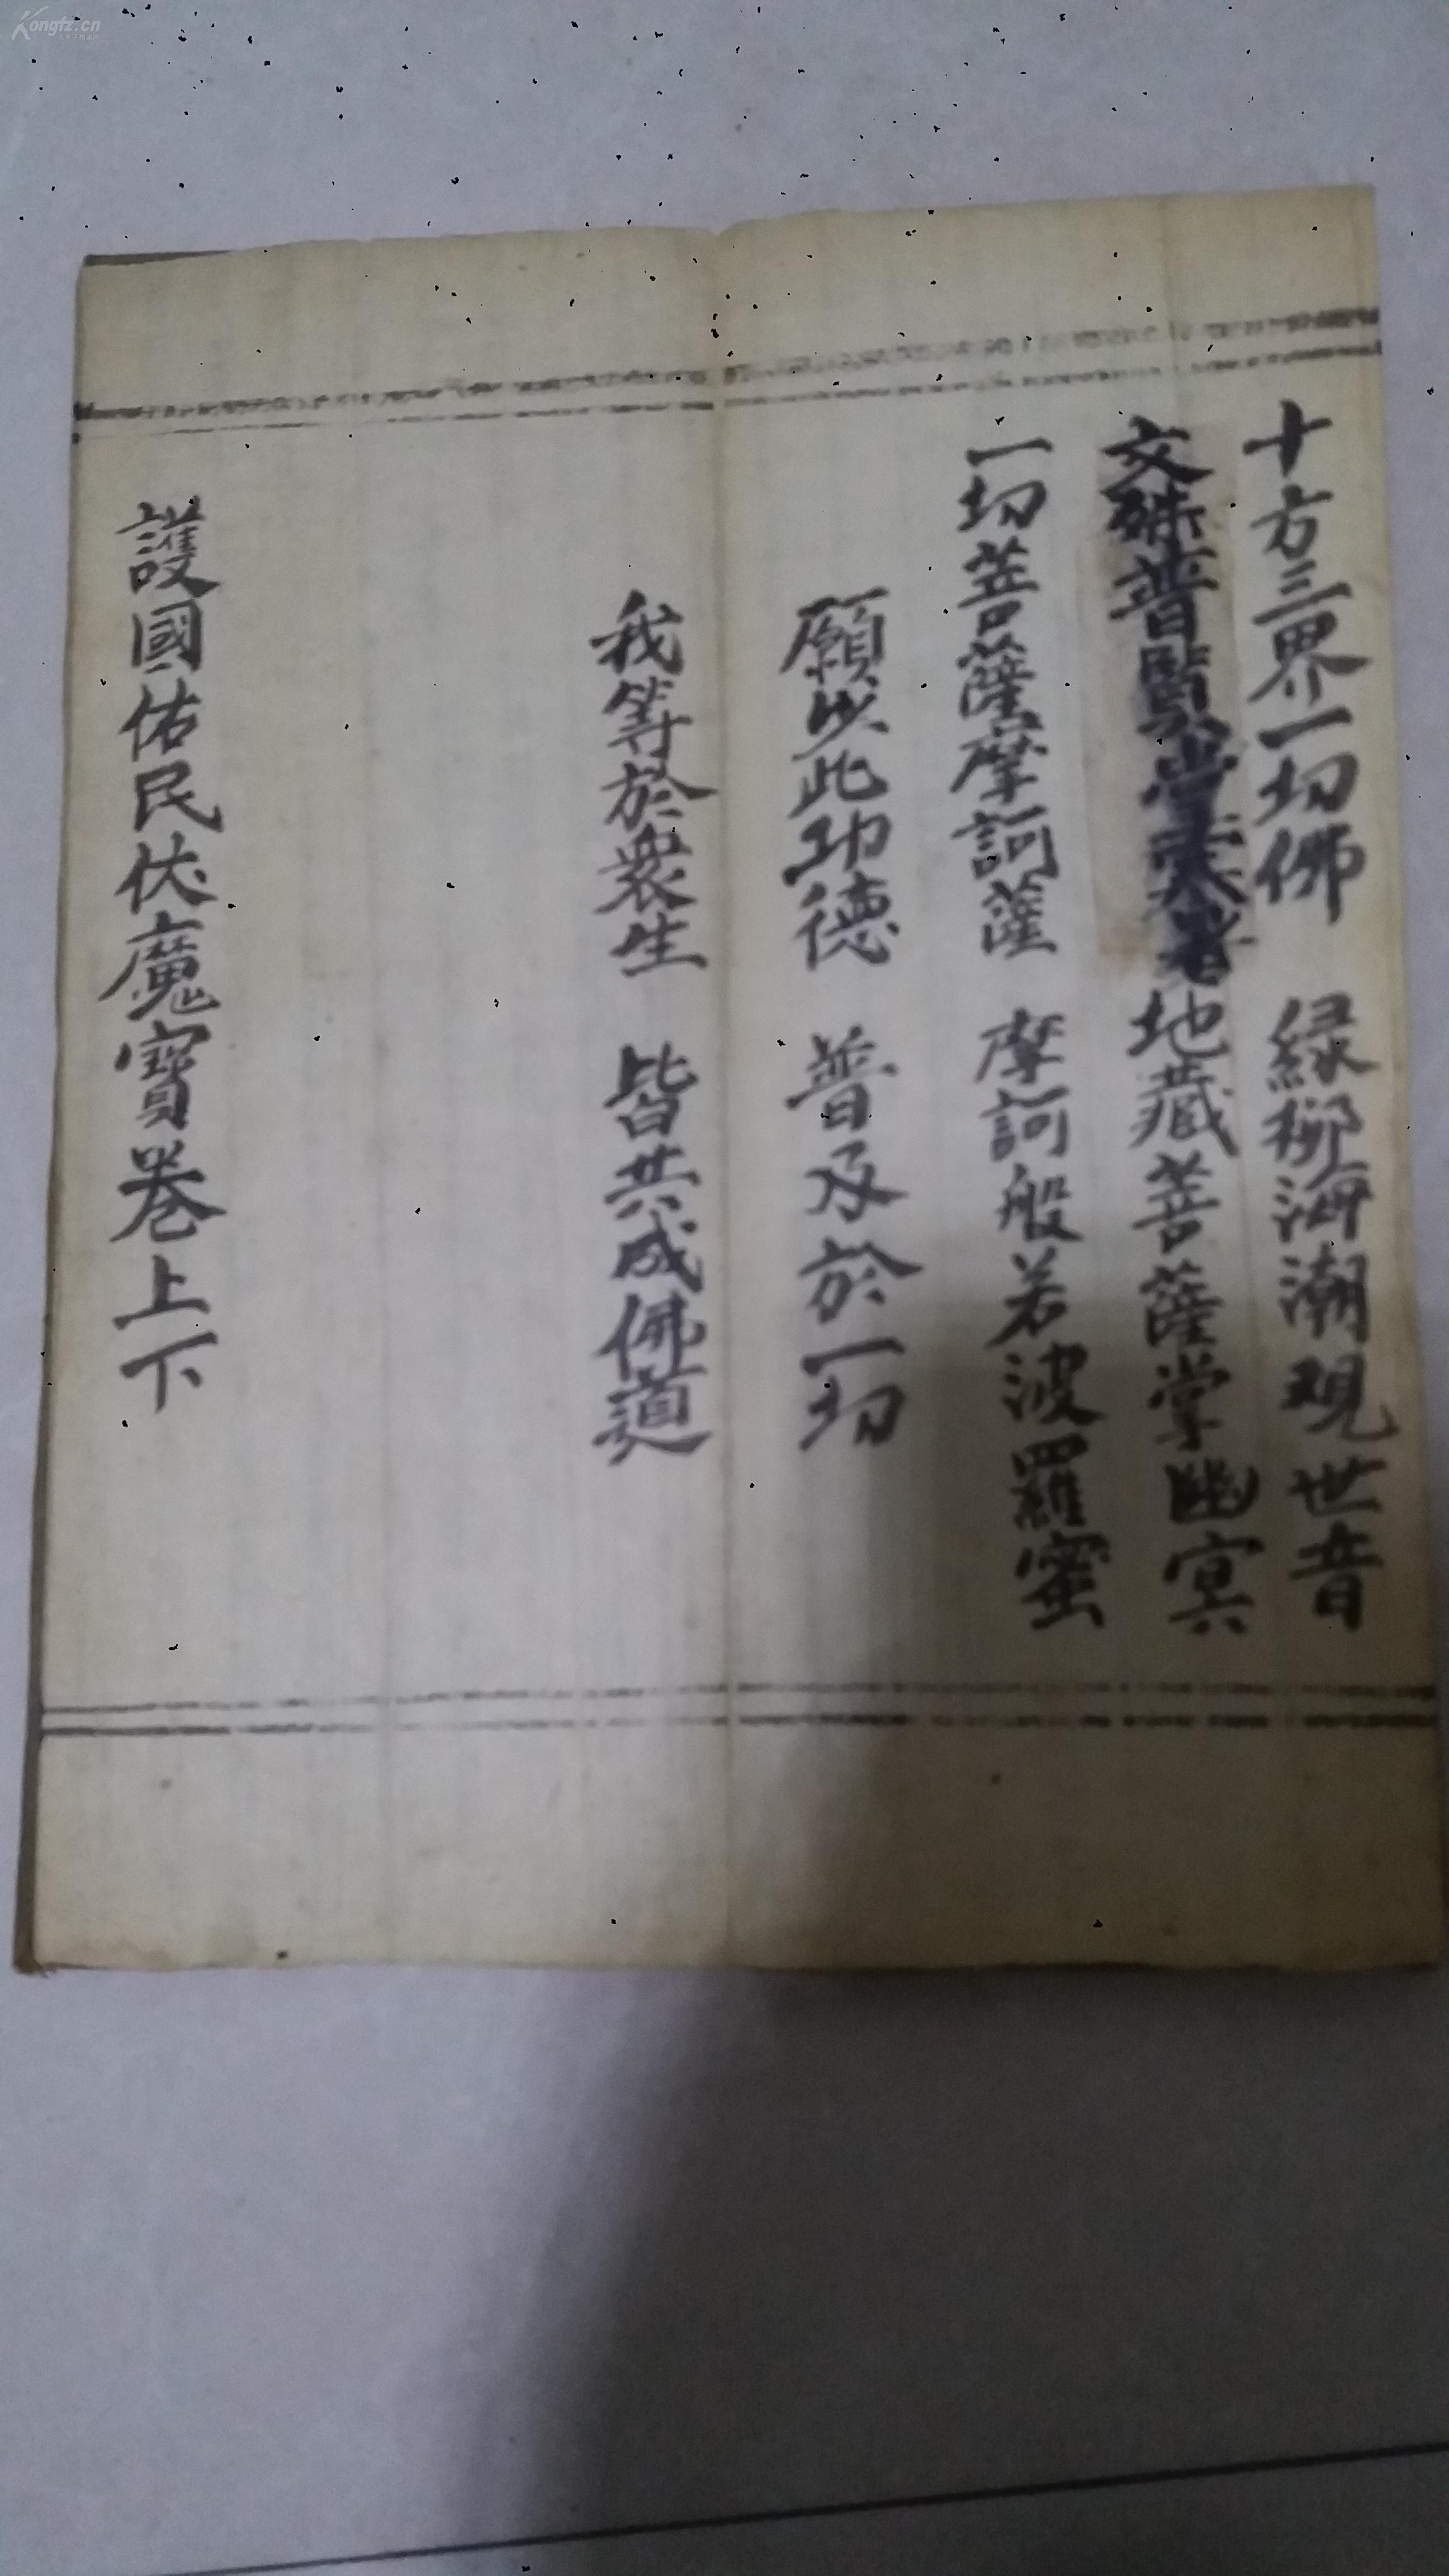 十方三界一切佛　緑栁海潮观世音
文殊普賢堂雲者地藏菩薩掌幽冥
一切菩薩摩訶薩　摩訶般若波羅蜜
願以此功德　普及於一切
我等於衆生　皆共成佛道
護國佑民伏魔寶巻上下
Kongfz.cn